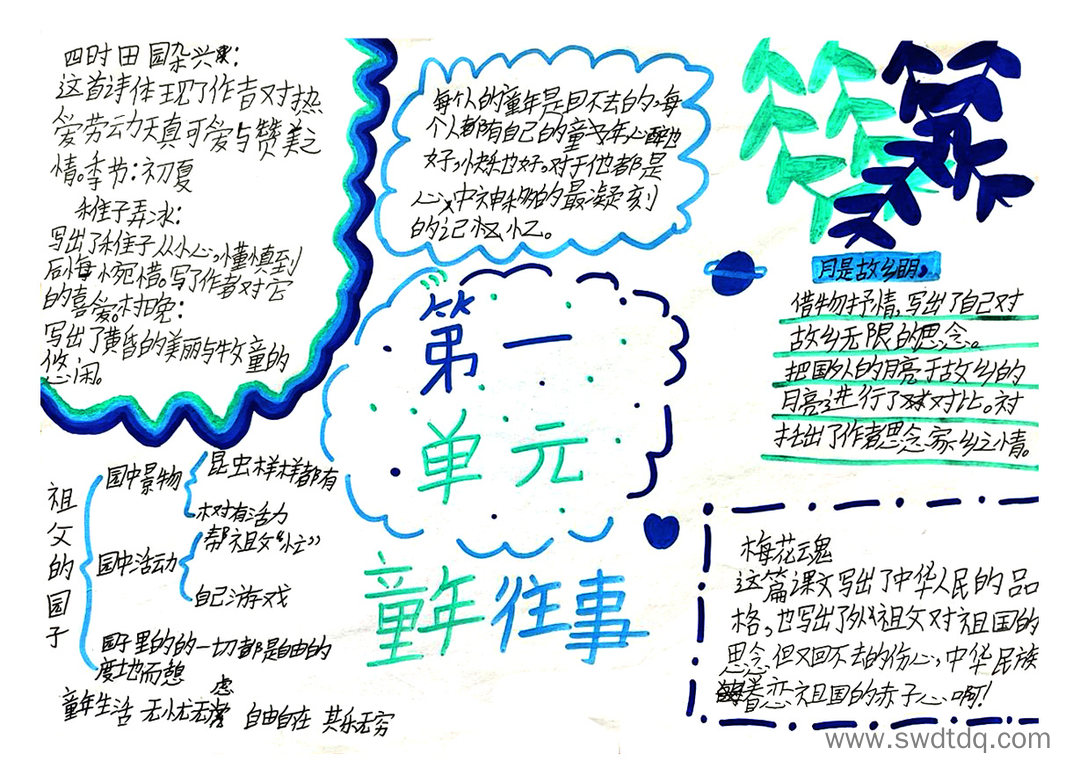 四时田园杂兴:
这首诗体现了作者对热
爱劳动天真可爱与赞美之
情。季节:初夏
稚子弄冰:
写出了稚子从小心。懂慎到
后悔惋惜。写了作者对它
的喜爱。村晚:
写出了黄昏的美丽与牧童的
悠闲。
每个人的童年是回不去的。每
个人都有自己的童年。心酸也
好,快乐也好。对于他都是
心中神秘的最凝刻
的记忆。
第一
单元
童年往事
月是故乡明。
借物抒情,写出了自己对
故乡无限的思念。
把国外的月亮于故乡的
月亮进行了对比。衬
托出了作者思念家乡之情。
祖父的园子
园中景物
昆虫样样都有
树有活力
园中活动
帮祖父“忙”
自己游戏
园子里的的一切都是自由的
童年生活 无忧无虑 自由自在 其乐无穷
梅花魂
这篇课文写出了中华人民的品
格,也写出了外祖父对祖国的
思念但又回不去的伤心,中华民族
眷恋祖国的赤子心啊!
www.swdtdq.com